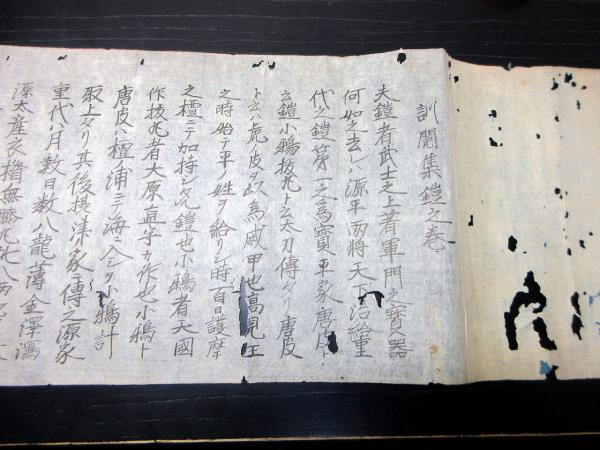 訓閲集鎧之巻
夫鎧者武士之上着軍門之寳器
何如之去レハ源平両将天下治給重
代之鎧第一之為寳平家唐皮ト
云鎧小鴉抜丸ト云太刀傳タリ唐皮
トハ虎皮ヲ以為威甲也高見王
之時始テ平ノ姓ヲ給リシ時百日護摩
之檀ニテ加持シタル鎧也小鴉者天國
作抜丸者大原真守カ作也小鴉ト
唐皮ハ檀浦ニテ海ニ入シヲ小鴉計
取上タリ其後摂津家ニ傳之源家
重代八月数日数八龍薄金澤瀉
源太産衣楯無膝丸